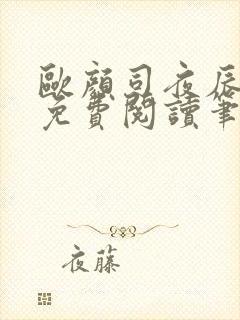 歐顏司夜辰
免費閱讀筆
夜藤